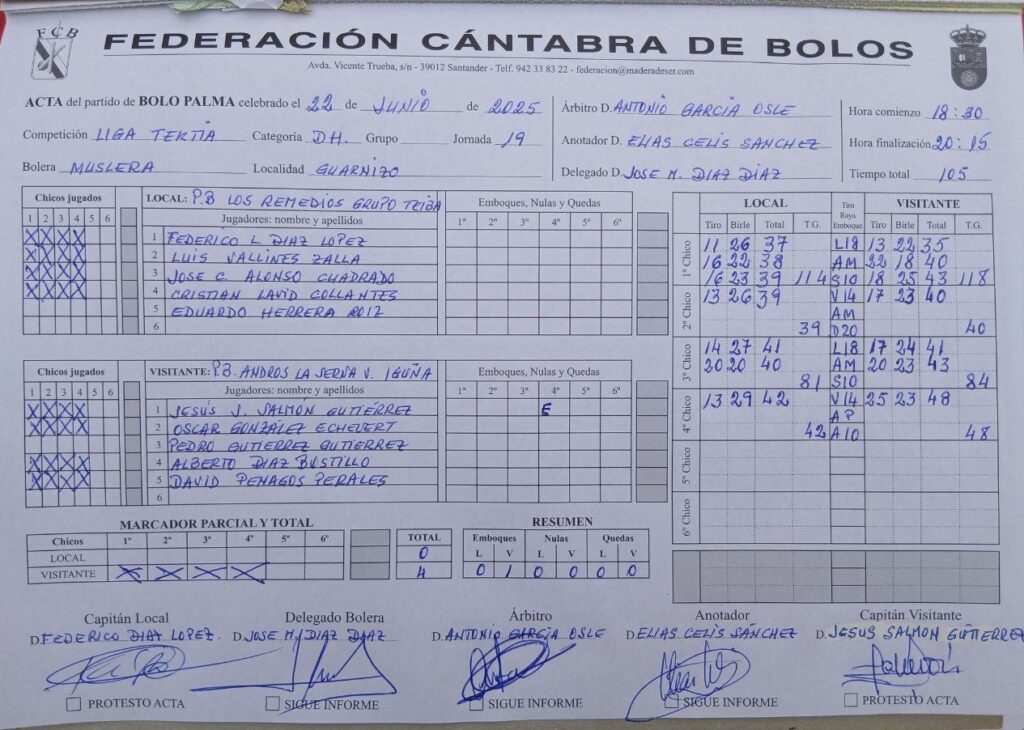 FCB
FEDERACIÓN CÁNTABRA DE BOLOS
Avda. Vicente Trueba, s/n - 39012 Santander - Telf. 942 33 83 22 - federacion@maderadeser.com
ACTA del partido de BOLO PALMA celebrado el 22 de JUNIO de 2025
Competición LIGA TERTIA Categoría DH. Grupo Jornada 19
Bolera MUSLERA Localidad GUARNIZO
Árbitro D. ANTONIO GARCIA OSLE
Anotador D. ELIAS CELIS SANCHEZ
Delegado D. JOSE M. DIAZ DIAZ
Hora comienzo 18:30
Hora finalización 20:15
Tiempo total 105
Chicos jugados
1 2 3 4 5 6
X X X X
X X X X
X X X X
X X X X
LOCAL: P.B LOS REMEDIOS GRUPO TRIBA
Jugadores: nombre y apellidos
1 FEDERICO L. DIAZ LOPEZ
2 LUIS VALLINES ZALLA
3 JOSE C. ALONSO CUADRADO
4 CRISTIAN LAVID COLLANTES
5 EDUARDO HERRERA ROIZ
6
Emboques, Nulas y Quedas
1º 2º 3º 4º 5º 6º
Chicos jugados
1 2 3 4 5 6
X X X X
X X X X
X X X X
X X X X
VISITANTE: P.B. ANDROS LA SERNA V. IGUÑA
Jugadores: nombre y apellidos
1 JESUS J. SALMÓN GUTIÉRREZ
2 OSCAR GONZÁLEZ ECHEVERT
3 PEDRO GUTIERREZ GUTIERREZ
4 ALBERTO DIAZ BUSTILLO
5 DAVID PENAGOS PERALES
6
Emboques, Nulas y Quedas
1º 2º 3º 4º 5º 6º
E
LOCAL Tiro Raya Emboque VISITANTE
Tiro Birle Total T.G. Tiro Birle Total T.G.
1º Chico
11 26 37 L18 13 22 35
16 22 38 AM 22 18 40
16 23 39 114 S10 18 25 43 118
2º Chico
13 26 39 V14 17 23 40
AM
39 D20 40
3º Chico
14 27 41 L18 17 24 41
20 20 40 AM 20 23 43
81 S10 84
4º Chico
13 29 42 V14 25 23 48
AP
42 A10 48
5º Chico
6º Chico
MARCADOR PARCIAL Y TOTAL
Chicos 1º 2º 3º 4º 5º 6º TOTAL
LOCAL 0
VISITANTE X X X X 4
RESUMEN
Emboques Nulas Quedas
L V L V L V
0 1 0 0 0 0
Capitán Local Delegado Bolera Árbitro Anotador Capitán Visitante
D. FEDERICO DIAZ LOPEZ. D. JOSE M. DIAZ DIAZ D. ANTONIO GARCIA OSLE D. ELIAS CELIS SÁNCHEZ D. JESUS SALMON GUTIERREZ
PROTESTO ACTA SIGUE INFORME SIGUE INFORME SIGUE INFORME PROTESTO ACTA